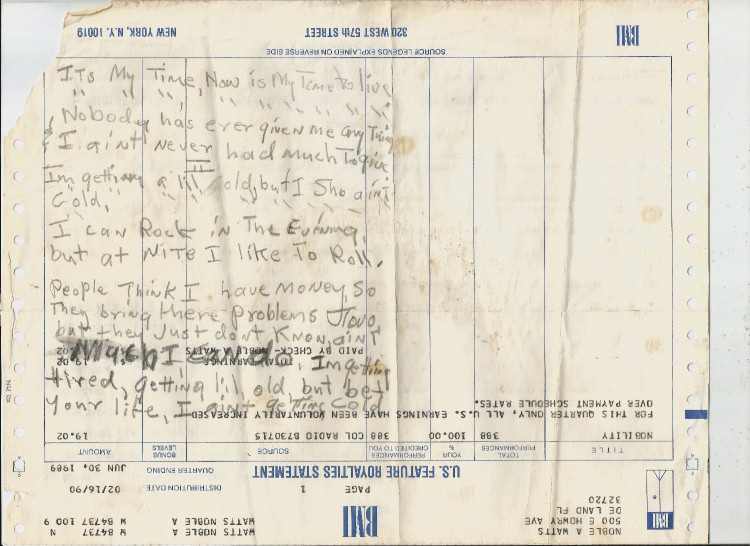 ITs My Time, Now is My Time To live
" " " " " " " "
Nobody has ever given me any Thing
& I aint never had much To give
Im getting a lil old, but I Sho aint
Cold,
I can Rock in The Evening,
but at NITE I like To Roll.
People Think I have money, So
They bring there problems
but they Just dont Know, aint
I, Im getting
tired, getting lil old, but bet
your life, I aint getting Cold
BMI
320 WEST 57th STREET
NEW YORK, N.Y. 10019
SOURCE LEGENDS EXPLAINED ON REVERSE SIDE
NOBLE A WATTS
500 E HOWRY AVE
DE LAND FL
32720
BMI
WATTS NOBLE A W 84737 N
WATTS NOBLE A W 84737 100 9
PAGE 1
DISTRIBUTION DATE 02/16/90
U.S. FEATURE ROYALTIES STATEMENT
QUARTER ENDING JUN 30, 1989
TITLE TOTAL PERFORMANCES YOUR % PERFORMANCES CREDITED TO YOU SOURCE BONUS LEVELS AMOUNT
NOBILITY 388 100.00 388 COL RADIO B730715 19.02
FOR THIS QUARTER ONLY, ALL U.S. EARNINGS HAVE BEEN VOLUNTARILY INCREASED
OVER PAYMENT SCHEDULE RATES.
TOTAL EARNINGS 19.02
PAID BY CHECK- NOBLE A WATTS